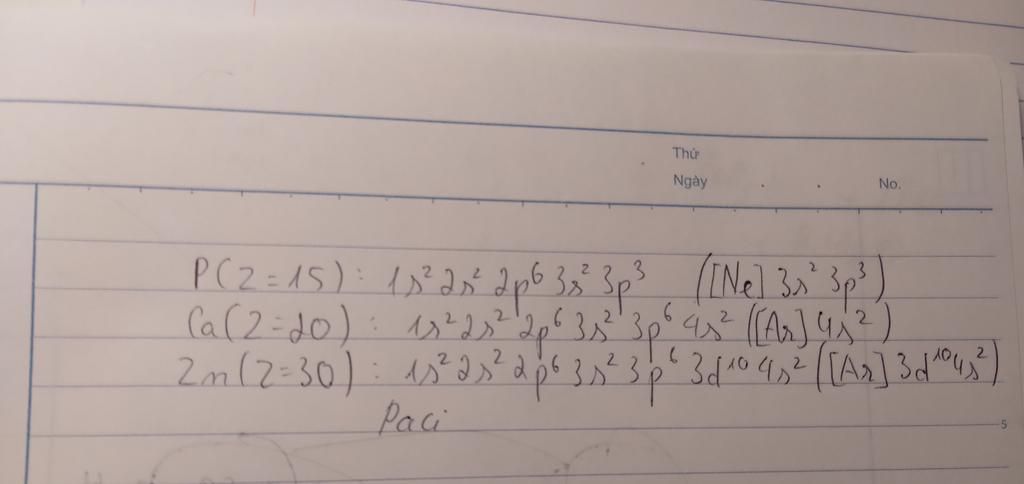 Thứ
Ngày . . No.
P(Z=15): 1s² 2s² 2p⁶ 3s² 3p³ ([Ne] 3s² 3p³)
Ca(Z=20): 1s² 2s² 2p⁶ 3s² 3p⁶ 4s² ([Ar] 4s²)
Zn(Z=30): 1s² 2s² 2p⁶ 3s² 3p⁶ 3d¹⁰ 4s² ([Ar] 3d¹⁰ 4s²)
Paci
5